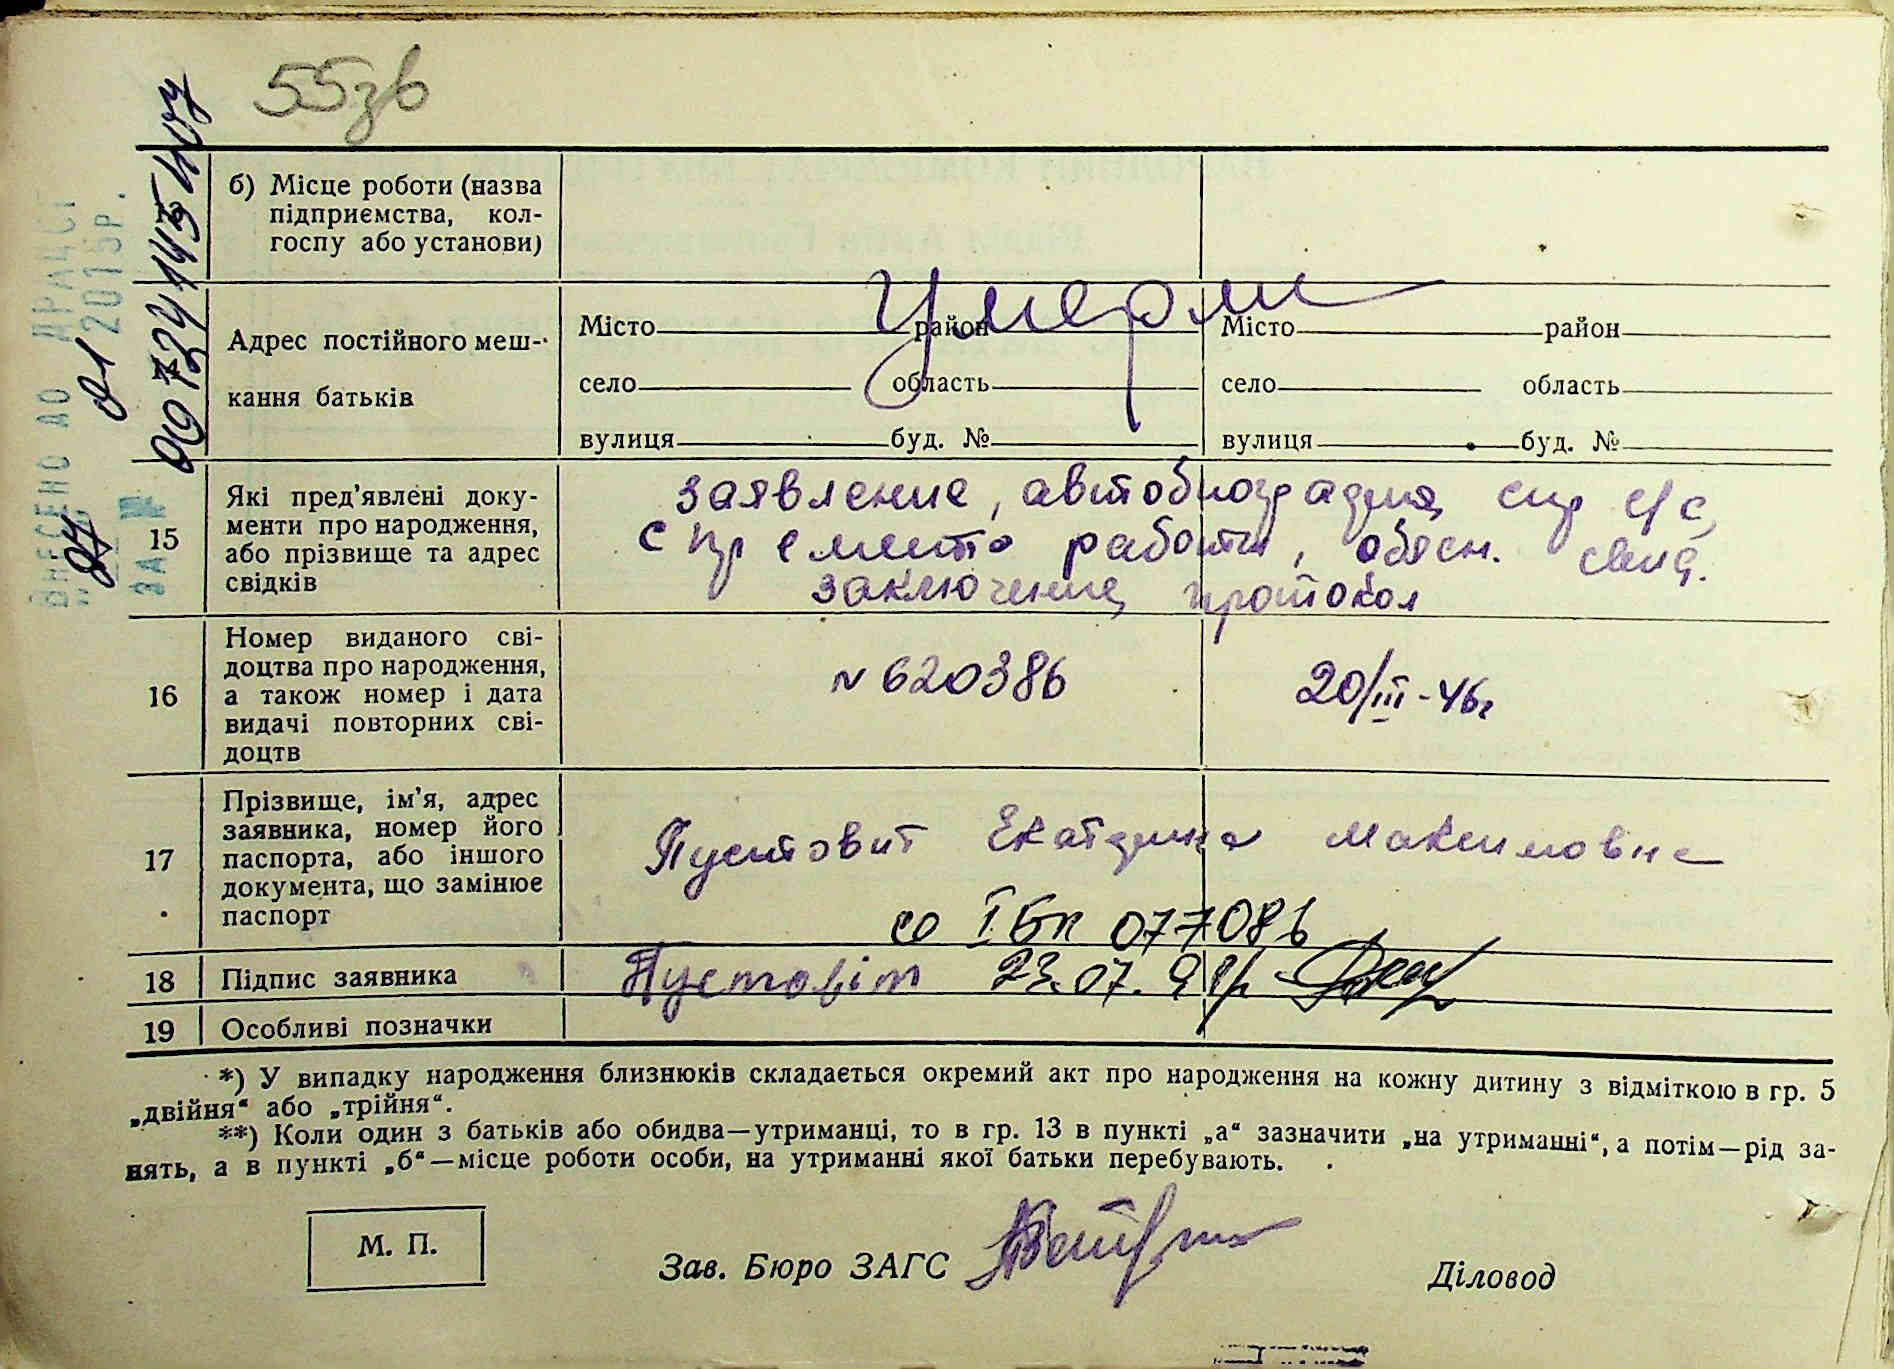 55зв
ВНЕСЕНО ДО ДРАЦСГ
01 2015р.
ЗА №
б) Місце роботи (назва
підприємства, кол-
госпу або установи)
Умерли
Адрес постійного меш-
кання батьків
Місто район Місто район
село область село область
вулиця буд. № вулиця буд. №
15 Які пред'явлені доку-
менти про народження,
або прізвище та адрес
свідків
заявление, автобиография, спр с/с,
спр с места работы, объясн. свид.
заключение, протокол
16 Номер виданого сві-
доцтва про народження,
а також номер і дата
видачі повторних сві-
доцтв
N 620386 20/III-46г
17 Прізвище, ім'я, адрес
заявника, номер його
паспорта, або іншого
документа, що замінює
паспорт
Пустовит Екатерина Максимовна
со I БП 077086
18 Підпис заявника Пустовіт 23.07.91р
19 Особливі позначки
*) У випадку народження близнюків складається окремий акт про народження на кожну дитину з відміткою в гр. 5
„двійня“ або „трійня“.
**) Коли один з батьків або обидва—утриманці, то в гр. 13 в пункті „а“ зазначити „на утриманні“, а потім—рід за-
нять, а в пункті „б“—місце роботи особи, на утриманні якої батьки перебувають.
М. П.
Зав. Бюро ЗАГС Діловод